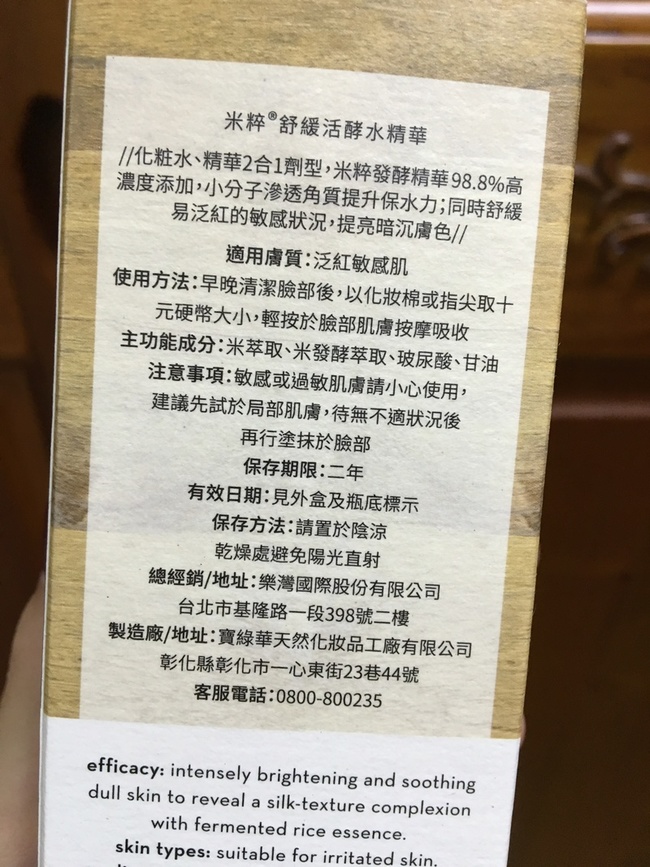 米粹®舒緩活酵水精華
//化粧水、精華2合1劑型,米粹發酵精華98.8%高
濃度添加,小分子滲透角質提升保水力;同時舒緩
易泛紅的敏感狀況,提亮暗沉膚色//
適用膚質:泛紅敏感肌
使用方法:早晚清潔臉部後,以化妝棉或指尖取十
元硬幣大小,輕按於臉部肌膚按摩吸收
主功能成分:米萃取、米發酵萃取、玻尿酸、甘油
注意事項:敏感或過敏肌膚請小心使用,
建議先試於局部肌膚,待無不適狀況後
再行塗抹於臉部
保存期限:二年
有效日期:見外盒及瓶底標示
保存方法:請置於陰涼
乾燥處避免陽光直射
總經銷/地址:樂灣國際股份有限公司
台北市基隆路一段398號二樓
製造廠/地址:寶綠華天然化妝品工廠有限公司
彰化縣彰化市一心東街23巷44號
客服電話:0800-800235
efficacy: intensely brightening and soothing
dull skin to reveal a silk-texture complexion
with fermented rice essence.
skin types: suitable for irritated skin.